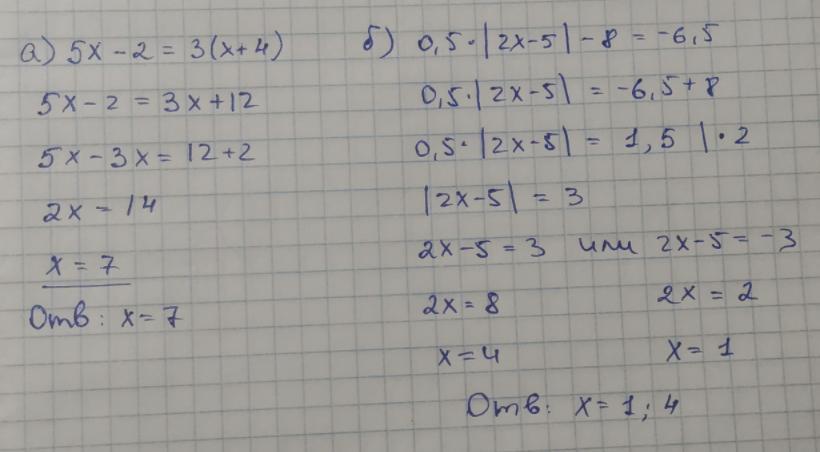 а) 5x - 2 = 3(x+4)
5x - 2 = 3x + 12
5x - 3x = 12 + 2
2x = 14
x = 7
Отв: x = 7
б) 0,5 · |2x-5| - 8 = -6,5
0,5 · |2x-5| = -6,5 + 8
0,5 · |2x-5| = 1,5 | · 2
|2x-5| = 3
2x - 5 = 3 или 2x - 5 = -3
2x = 8 2x = 2
x = 4 x = 1
Отв: x = 1; 4